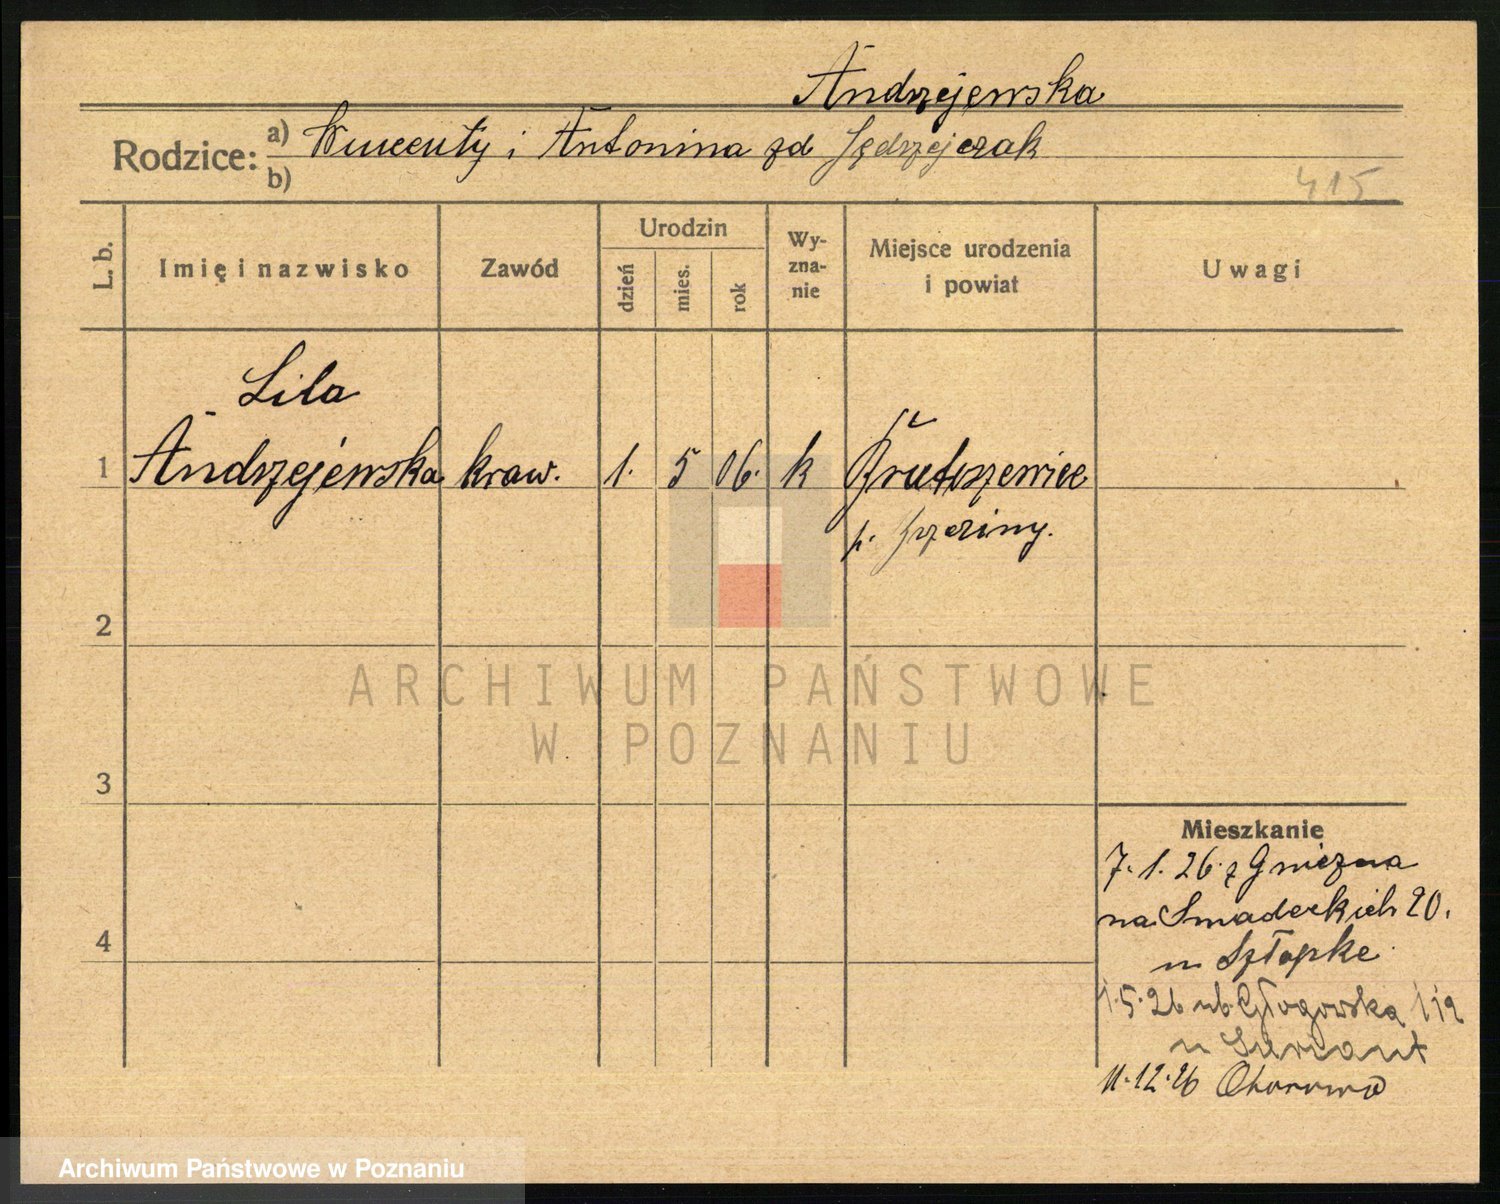 Andrzejewska
Rodzice: a) Wincenty i Antonina zd Jędrzejczak
b)
415
L. b.
Imię i nazwisko
Zawód
Urodzin
dzień
mies.
rok
Wy-
zna-
nie
Miejsce urodzenia
i powiat
Uwagi
Lila
1 Andrzejewska kraw. 1. 5 06. k
p.
2
3
4
Mieszkanie
7.1.26 z Gniezna
na 20.
m Sztopke
1.5.26 Głogowska 112
11.12.26
ARCHIWUM PAŃSTWOWE
W POZNANIU
Archiwum Państwowe w Poznaniu